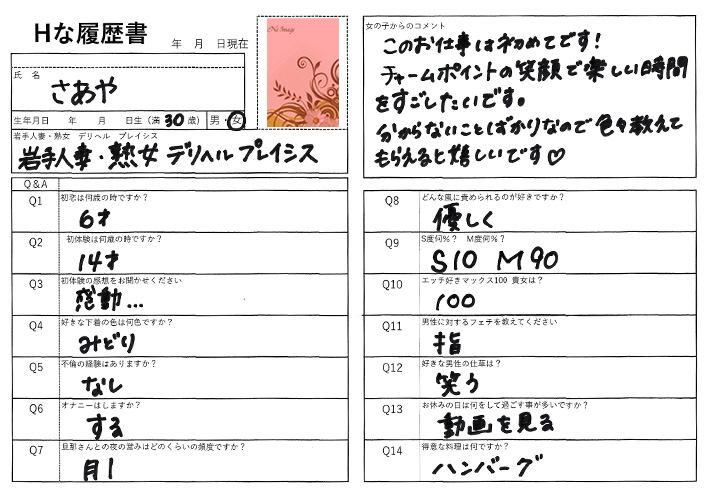 Hな履歴書
年 月 日現在
No Image
氏 名
さあや
生年月日 年 月 日生 (満 30 歳) 男・女
岩手人妻・熟女 デリヘル プレイシス
岩手人妻・熟女 デリヘル プレイシス
女の子からのコメント
このお仕事は初めてです！
チャームポイントの笑顔で楽しい時間
をすごしたいです。
分からないことばかりなので色々教えて
もらえると嬉しいです♡
Q&A
Q1 初恋は何歳の時ですか？
6才
Q4 好きな下着の色は何色ですか？
みどり
Q5 不倫の経験はありますか？
なし
Q6 オナニーはしますか？
する
Q7 旦那さんとの夜の営みはどのくらいの頻度ですか？
月1
Q8 どんな風に責められるのが好きですか？
優しく
Q9 S度何％？ M度何％？
S10 M90
Q10 エッチ好きマックス100 貴女は？
100
Q11 男性に対するフェチを教えてください
指
Q12 好きな男性の仕草は？
笑う
Q13 お休みの日は何をして過ごす事が多いですか？
動画を見る
Q14 得意な料理は何ですか？
ハンバーグ